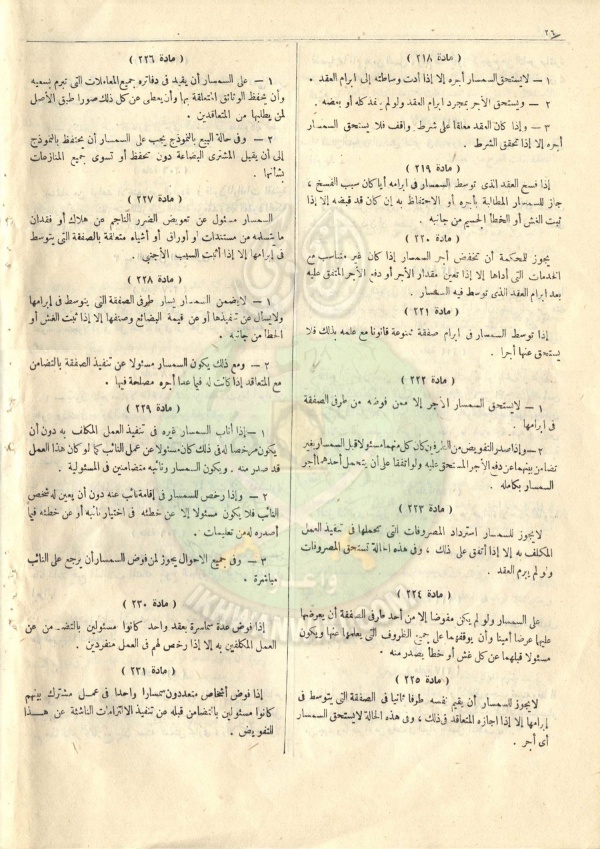 ٢٦
( مادة ٢١٨ )
١ – لايستحق السمسار أجره إلا إذا أدت وساطته إلى ابرام العقد .
٢ – ويستحق الأجر بمجرد ابرام العقد ولو لم ينفذ كله أو بعضه .
٣ – وإذا كان العقد معلقا على شرط واقف فلا يستحق السمسار
أجره إلا إذا تحقق الشرط .
( مادة ٢١٩ )
إذا فسخ العقد الذى توسط السمسار فى ابرامه أيا كان سبب الفسخ ،
جاز للسمسار المطالبة بأجره أو الاحتفاظ به إن كان قد قبضه إلا إذا
ثبت الغش أو الخطأ الجسيم من جانبه .
( مادة ٢٢٠ )
يجوز للمحكمة أن تخفض أجر السمسار إذا كان غير متناسب مع
الخدمات التى أداها إلا إذا تعين مقدار الأجر أو دفع الأجر المتفق عليه
بعد ابرام العقد الذى توسط فيه السمسار .
( مادة ٢٢١ )
إذا توسط السمسار فى ابرام صفقة ممنوعة قانونا مع علمه بذلك فلا
يستحق عنها أجرا .
( مادة ٢٢٢ )
١ – لايستحق السمسار الأجر إلا ممن فوضه من طرفى الصفقة
فى ابرامها .
٢ – وإذا صدر التفويض من الطرفين كان كل منهما مسئولا قبل السمسار بغير
تضامن بينهما عن دفع الأجر المستحق عليه ولو اتفقا على أن يتحمل أحدهما أجر
السمسار بكامله .
( مادة ٢٢٣ )
لايجوز للسمسار استرداد المصروفات التى يتحملها فى تنفيذ العمل
المكلف به إلا إذا أتفق على ذلك ، وفى هذه الحالة تستحق المصروفات
ولو لم يبرم العقد .
( مادة ٢٢٤ )
على السمسار ولو لم يكن مفوضا إلا من أحد طرفى الصفقة أن يعرضها
عليهما عرضا أمينا وأن يوقفهما على جميع الظروف التى يعلمها عنها ويكون
مسئولا قبلهما عن كل غش أو خطأ يصدر منه .
( مادة ٢٢٥ )
لايجوز للسمسار أن يقيم نفسه طرفا ثانيا فى الصفقة التى يتوسط فى
إبرامها إلا إذا اجازه المتعاقد فى ذلك ، وفى هذه الحالة لايستحق السمسار
أى أجر .
( مادة ٢٢٦ )
١ – على السمسار أن يقيد فى دفاتره جميع المعاملات التى تبرم بسعيه
وأن يحتفظ الوثائق المتعلقة بها وأن يعطى عن كل ذلك صورا طبق الأصل
لمن يطلبها من المتعاقدين .
٢ – وفى حالة البيع بالنموذج يجب على السمسار أن يحتفظ بالنموذج
إلى أن يقبل المشترى البضاعة دون تحفظ أو تسوى جميع المنازعات
بشأنها .
( مادة ٢٢٧ )
السمسار مسئول عن تعويض الضرر الناجم عن هلاك أو فقدان
ما يتسلمه من مستندات أو اوراق أو أشياء متعلقة بالصفقة التى يتوسط
فى إبرامها إلا إذا أثبت السبب الأجنبى .
( مادة ٢٢٨ )
١ – لايضمن السمسار يسار طرفى الصفقة التى يتوسط فى إبرامها
ولايسأل عن تنفيذها أو عن قيمة البضائع وصنفها إلا إذا ثبت الغش أو
الخطأ من جانبه .
٢ – ومع ذلك يكون السمسار مسئولا عن تنفيذ الصفقة بالتضامن
مع المتعاقد إذا كانت له فيها عدا أجره مصلحة فيها .
( مادة ٢٢٩ )
١ – إذا أناب السمسار غيره فى تنفيذ العمل المكلف به دون أن
يكون مرخصا له فى ذلك كان مسئولا عن عمل النائب كما لو كان هذا العمل
قد صدر منه . ويكون السمسار ونائبه متضامنين فى المسئولية .
٢ – وإذا رخص للسمسار فى إقامة نائب عنه دون أن يعين له شخص
النائب فلا يكون مسئولا إلا عن خطئه فى اختيار نائبه أو عن خطئه فيما
أصدره له من تعليمات .
٣ – وفى جميع الاحوال يجوز لمن فوض السمسار أن يرجع على النائب
مباشرة .
( مادة ٢٣٠ )
إذا فوض عدة سماسرة بعقد واحد كانوا مسئولين بالتضامن عن
العمل المكلفين به إلا إذا رخص لهم فى العمل منفردين .
( مادة ٢٣١ )
إذا فوض أشخاص متعددون سمسارا واحدا فى عمل مشترك بينهم
كانوا مسئولين بالتضامن قبله عن تنفيذ الالتزامات الناشئة عن هذا
التفويض .